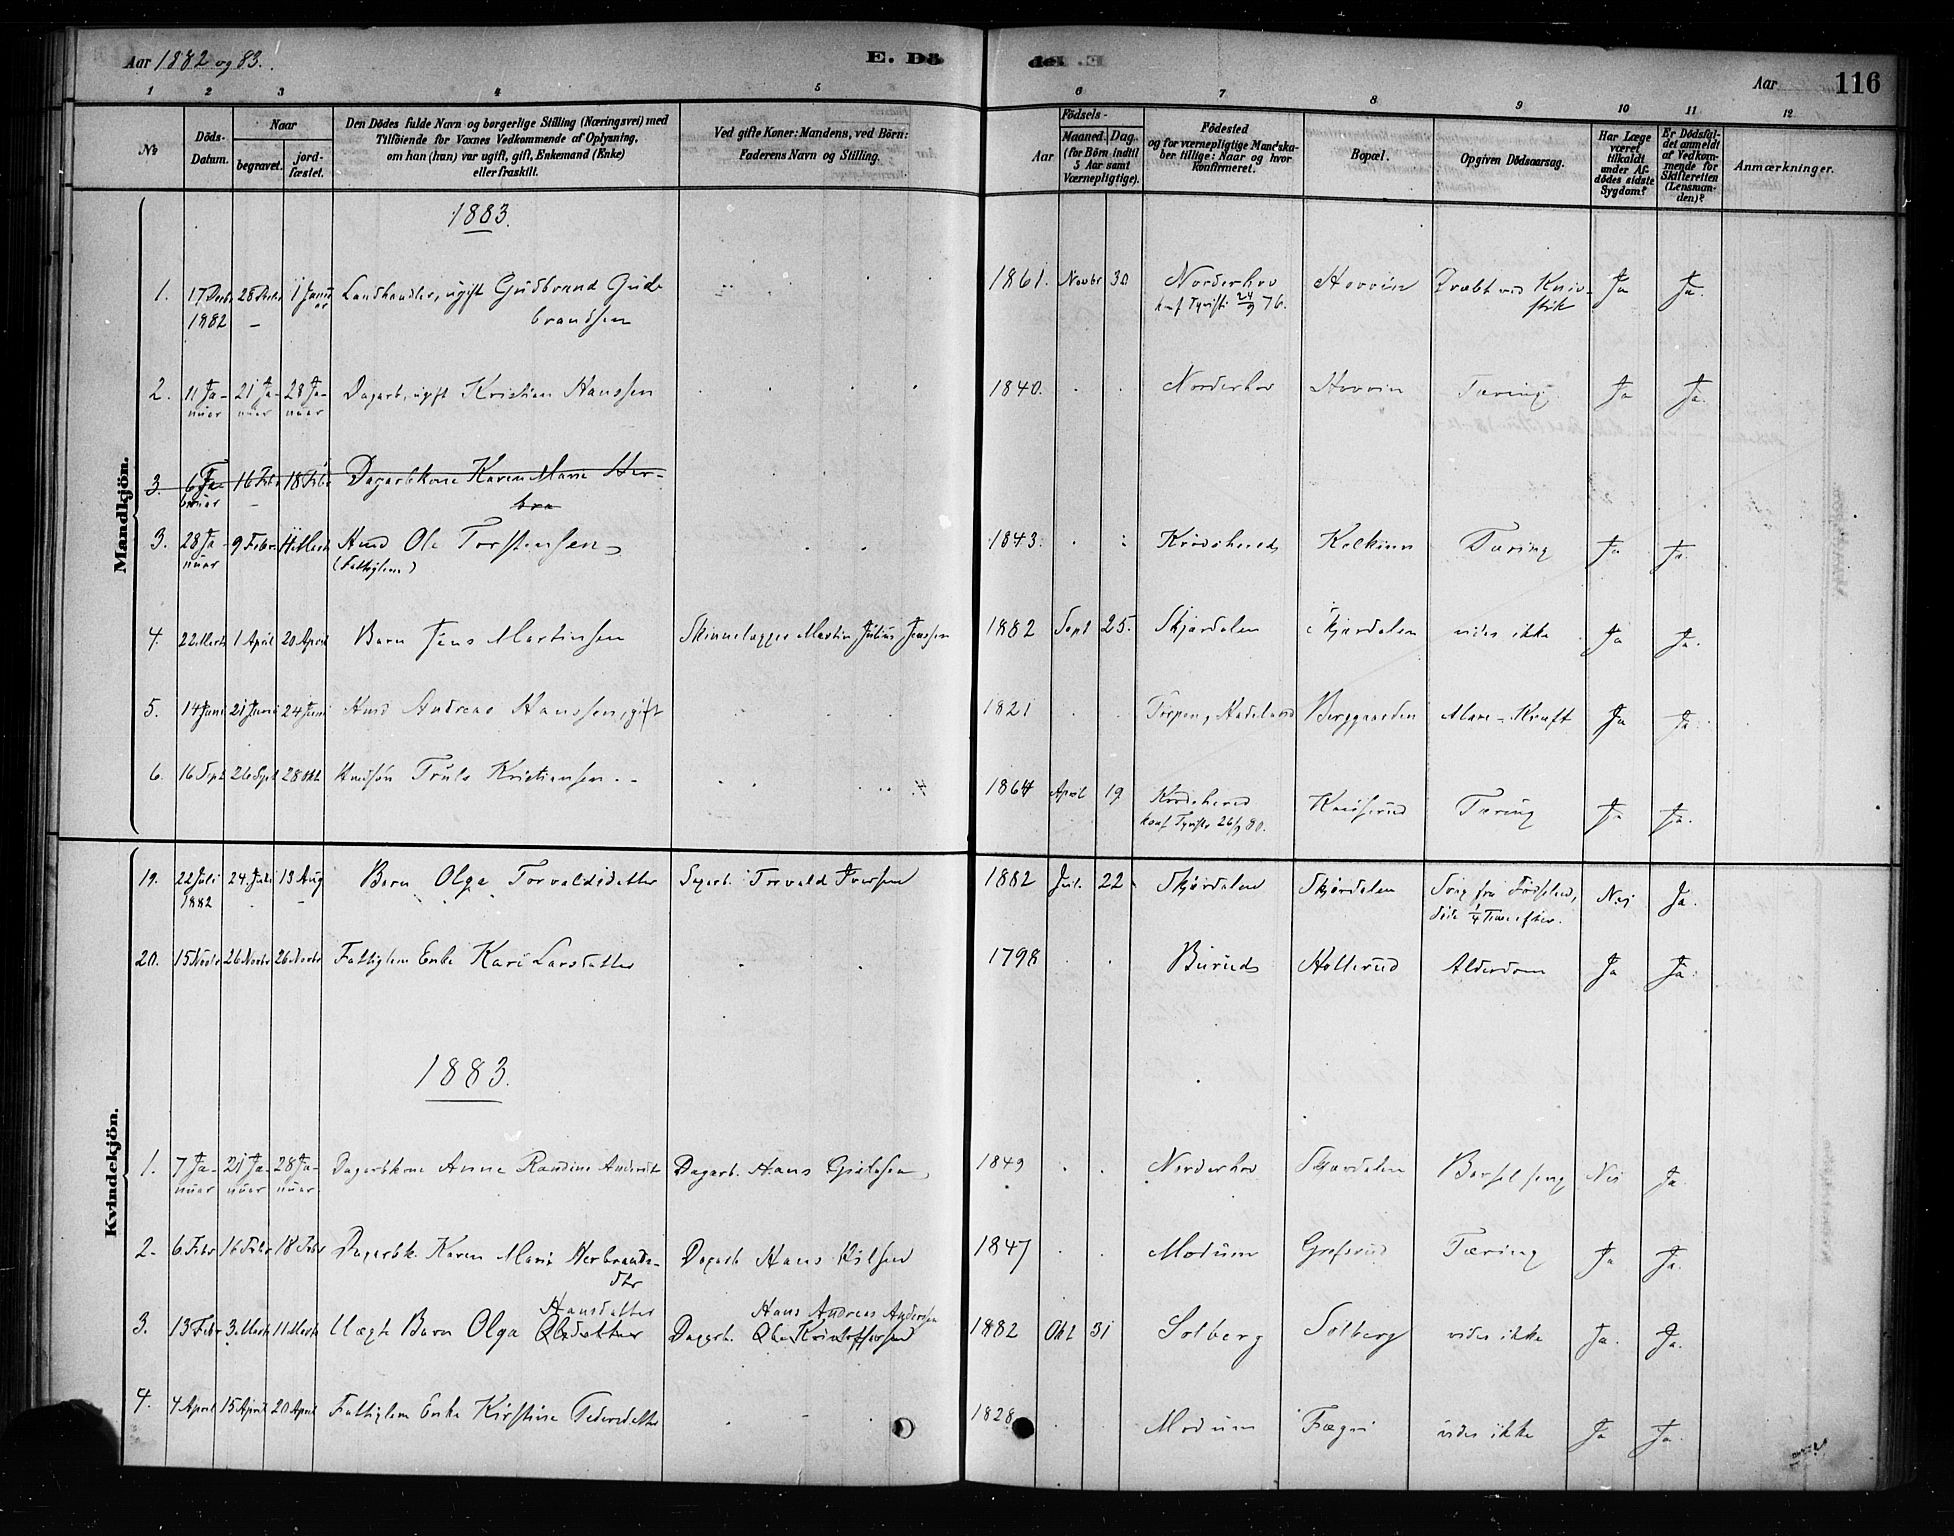 Aar 1882 og 83.
E. Dö
de E.
Aar
116
1 2 3 4 5 6 7 8 9 10 11 12
No
Döds-
Datum.
Naar
begravet.
jord-
fæstet.
Den Dödes fulde Navn og borgerlige Stilling (Næringsvei) med
Tilföiende for Voxnes Vedkommende af Oplysning,
om han (hun) var ugift, gift, Enkemand (Enke)
eller fraskilt.
Ved gifte Koner: Mandens, ved Börn:
Faderens Navn og Stilling.
Födsels-
Aar
Maaned. Dag.
(for Börn indtil
5 Aar samt
Værnepligtige).
Födested
og for værnepligtige Mandska-
ber tillige: Naar og hvor
konfirmeret.
Bopæl.
Opgiven Dödsaarsag.
Har Læge
været
tilkaldt
under Af-
dödes sidste
Sygdom?
Er Dödsfal-
det anmeldt
af Vedkom-
mende for
Skifteretten
(Lensman-
den)?
Anmærkninger.
Mandkjön.
1883.
1. 17 Decbr 28 Decbr 1 Janu Landhandler, ugift Gudbrand Gud- 1861. Novbr 30 Norderhov Hovvin Dræbt ved Kniv- Ja Ja.
1882 – ar brandsen konf Tyristr. 24/9 76. stik
2. 11 Ja- 21 Ja- 28 Ja- Dagarb., ugift Kristian Hanssen 1840. Norderhov Hovvin Tæring Ja Ja.
nuar nuar nuar
3. 6 Fe- 16 Febr 18 Febr Dagarbkone Karen Marie Her-
bruar bra
3. 28 Ja- 9 Febr. 11 Marts Hmd Ole Torstensen 1843. Krödsherred Kolkinn Tæring Ja Ja.
nuar (Fattiglem)
4. 22 Marts 1 April 20 April Barn Jens Martinsen Skinnelægger Martin Julius Jenssen 1882 Sept 25. Skjærdalen Skjærdalen vides ikke Ja Ja.
5. 14 Juni 21 Juni 24 Juni Hmd Andreas Hanssen, gift 1821 Torpen, Hadeland Berggaarden Mave-Kræft Ja Ja.
6. 16 Spt 26 Spt 28 Okt Hmdsön Truls Kristiansen 1864 April 19 Krödsherred Knivserud Tæring Ja Ja.
konf Tyristr 26/9 80.
Kvindekjön.
19. 22 Juli 24 Juli 13 Aug Barn Olga Torvaldsdatter Sagarb. Torvald Iversen 1882 Jul. 22 Skjærdalen Skjærdalen Svag fra Födselen, Nei Ja.
1882 döde 1/4 Time efter.
20. 15 Novbr 26 Novbr 26 Novbr Fattiglem Enke Kari Larsdatter 1798 Burud Hollerud Alderdom Ja Ja.
1883.
1. 7 Ja- 21 Ja- 28 Ja- Dagarbkone Anne Randine Andersdt Dagarb. Hans Gulsen 1849 Norderhov Skjærdalen Barselseng Nei Ja.
nuar nuar nuar
2. 6 Febr 16 Febr 18 Febr Dagarbk. Karen Marie Herbrands- Dagarb. Hans Nilsen 1847 Modum Grefsrud Tæring Ja Ja.
dtr
Hansdatter Hans Andreas Andersen
3. 13 Febr 3. Marts 11 Marts Uægte Barn Olga Olsdatter Dagarb. Ole Kristoffersen 1882 Okt 31 Solberg Solberg vides ikke Ja. Ja.
4. 4 April 15 April 20 April Fattiglem Enke Kirstine Pedersdatter 1828 Modum Fægri vides ikke Ja Ja.